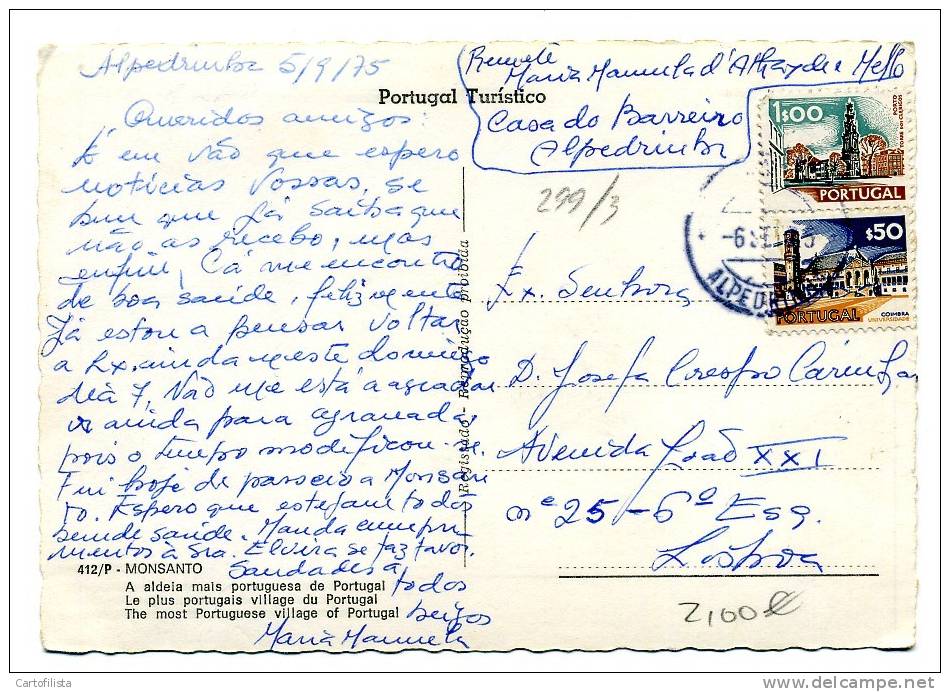 Alpedrinha 5/9/75
Queridos amigos:
É em vão que espero
notícias vossas, se
bem que já saiba que
não as recebo, mas
enfim, Cá me encontro
de boa saúde, felizmente
Já estou a pensar voltar
a Lx. ainda neste domingo
dia 7. Não me está a agradar
ainda para
pois o tempo modificou-se.
Fui hoje de passeio a Monsan
to. Espero que estejam todos
bem de saúde. Manda cumpri
mentos à Sra. Elvira se faz favor.
Saudades a
todos
beijos
Maria Manuela
412/P - MONSANTO
A aldeia mais portuguesa de Portugal
Le plus portugais village du Portugal
The most Portuguese village of Portugal
Portugal Turístico
Registado - Reprodução proibida
Remete
Maria Manuela d'Athayde e Mello
Casa do Barreiro
Alpedrinha
299/3
Ex. Senhora
D. Josefa Crespo
Avenida João XXI
nº 25-6º Esq.
Lisboa
2,00€
1$00
PORTO
TORRE DOS CLÉRIGOS
PORTUGAL
$50
COIMBRA
UNIVERSIDADE
PORTUGAL
Cartofilista
delcampe.net